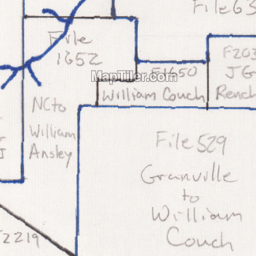 File 63
File
1652
MapTiler.com
F1650
William Couch
F203
JG
Rench
NC to
William
Ansley
J
File 529
Granville
to
William
Couch
F2219